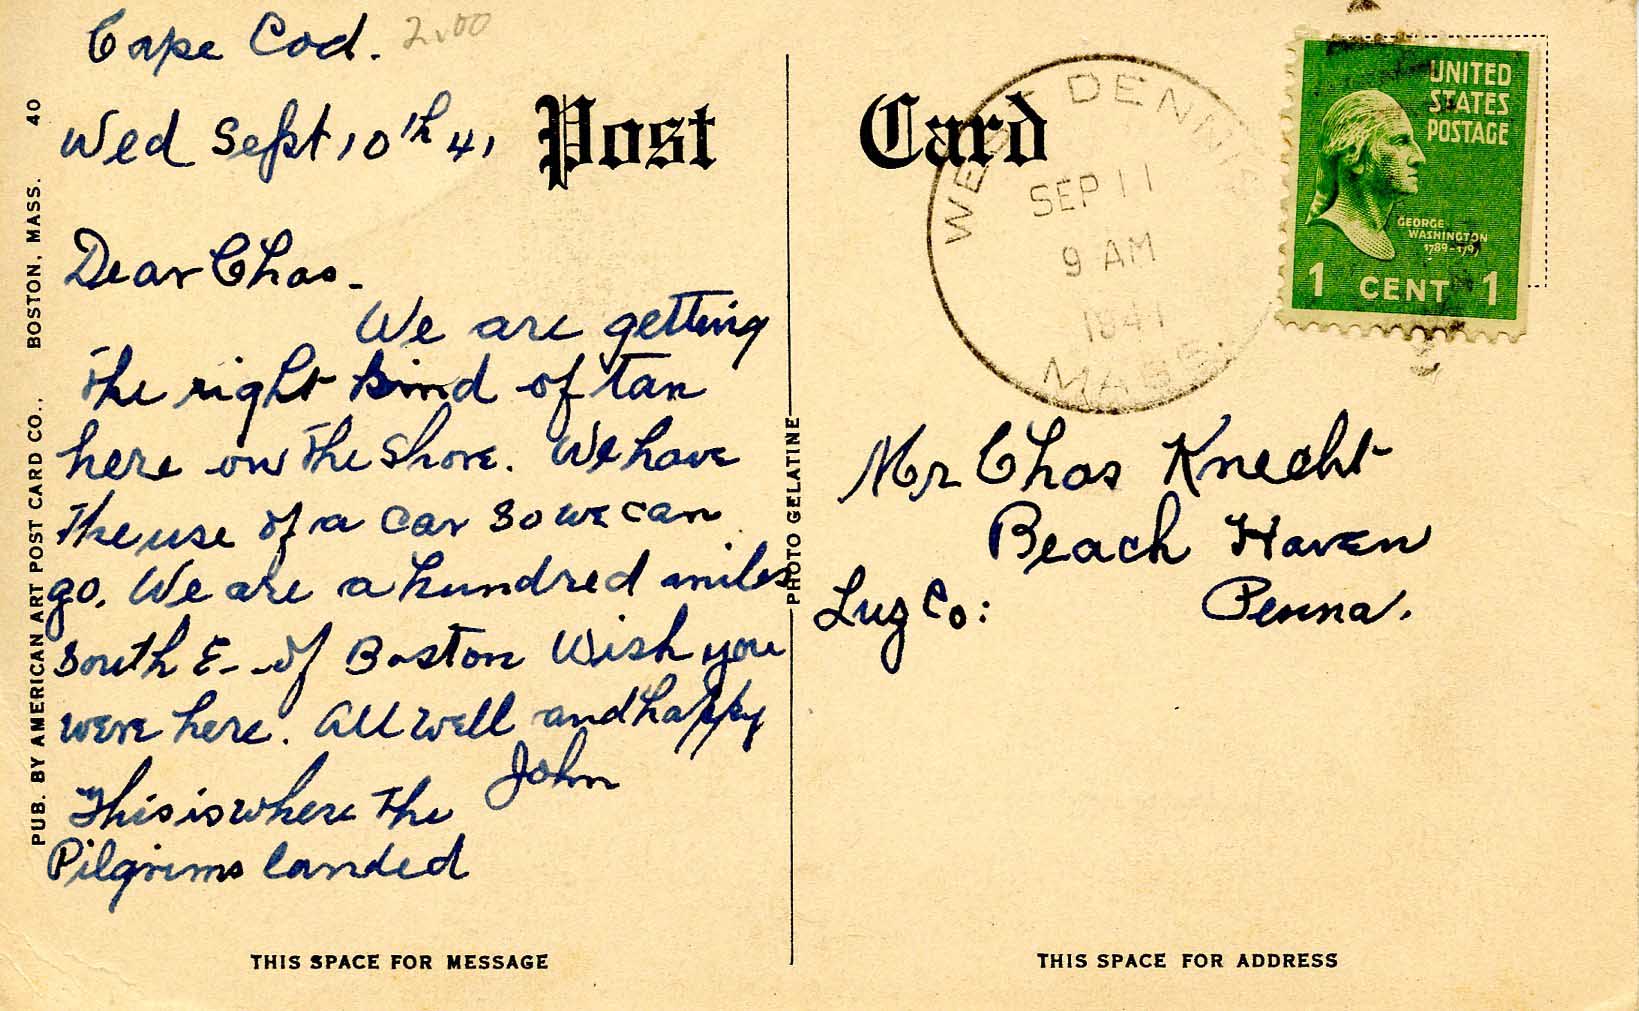 Cape Cod.
2.00
Wed Sept 10th 41
Dear Chas -
We are getting
the right kind of tan
here on the shore. We have
the use of a car so we can
go. We are a hundred miles
south E- of Boston Wish you
were here. All well and happy
John
This is where the
Pilgrims landed
Post Card
WEST DENNIS
SEP 11
9 AM
1941
MASS.
UNITED
STATES
POSTAGE
GEORGE
WASHINGTON
1789-1797
1 CENT 1
Mr Chas Knecht
Beach Haven
Luz Co: Penna.
PUB. BY AMERICAN ART POST CARD CO., BOSTON, MASS. 40
PHOTO GELATINE
THIS SPACE FOR MESSAGE
THIS SPACE FOR ADDRESS